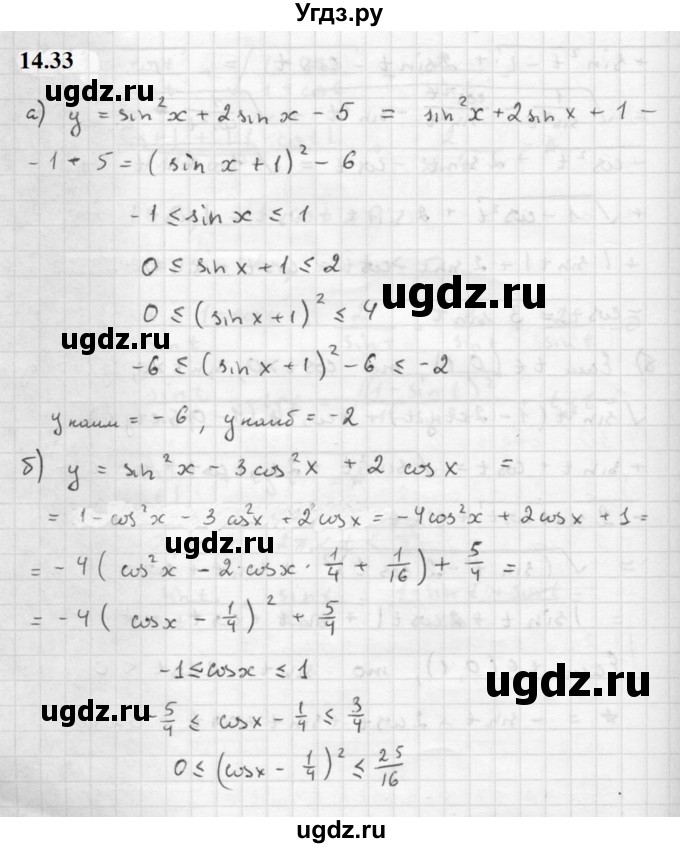 Угдз.ру
14.33
а) y = sin²x + 2 sin x - 5 = sin²x + 2 sin x + 1 -
- 1 - 5 = (sin x + 1)² - 6
-1 ≤ sin x ≤ 1
0 ≤ sin x + 1 ≤ 2
ugdz.ru
0 ≤ (sin x + 1)² ≤ 4
ugdz.ru
-6 ≤ (sin x + 1)² - 6 ≤ -2
yнаим = -6, yнаиб = -2
б) y = sin²x - 3 cos²x + 2 cos x =
= 1 - cos²x - 3 cos²x + 2 cos x = -4cos²x + 2 cos x + 1 =
ugdz.ru
= -4 (cos²x - 2·cos x · 1/4 + 1/16) + 5/4 =
= -4 (cos x - 1/4)² + 5/4
-1 ≤ cos x ≤ 1
ugdz.ru
ugdz.ru
-5/4 ≤ cos x - 1/4 ≤ 3/4
0 ≤ (cos x - 1/4)² ≤ 25/16
ugdz.ru